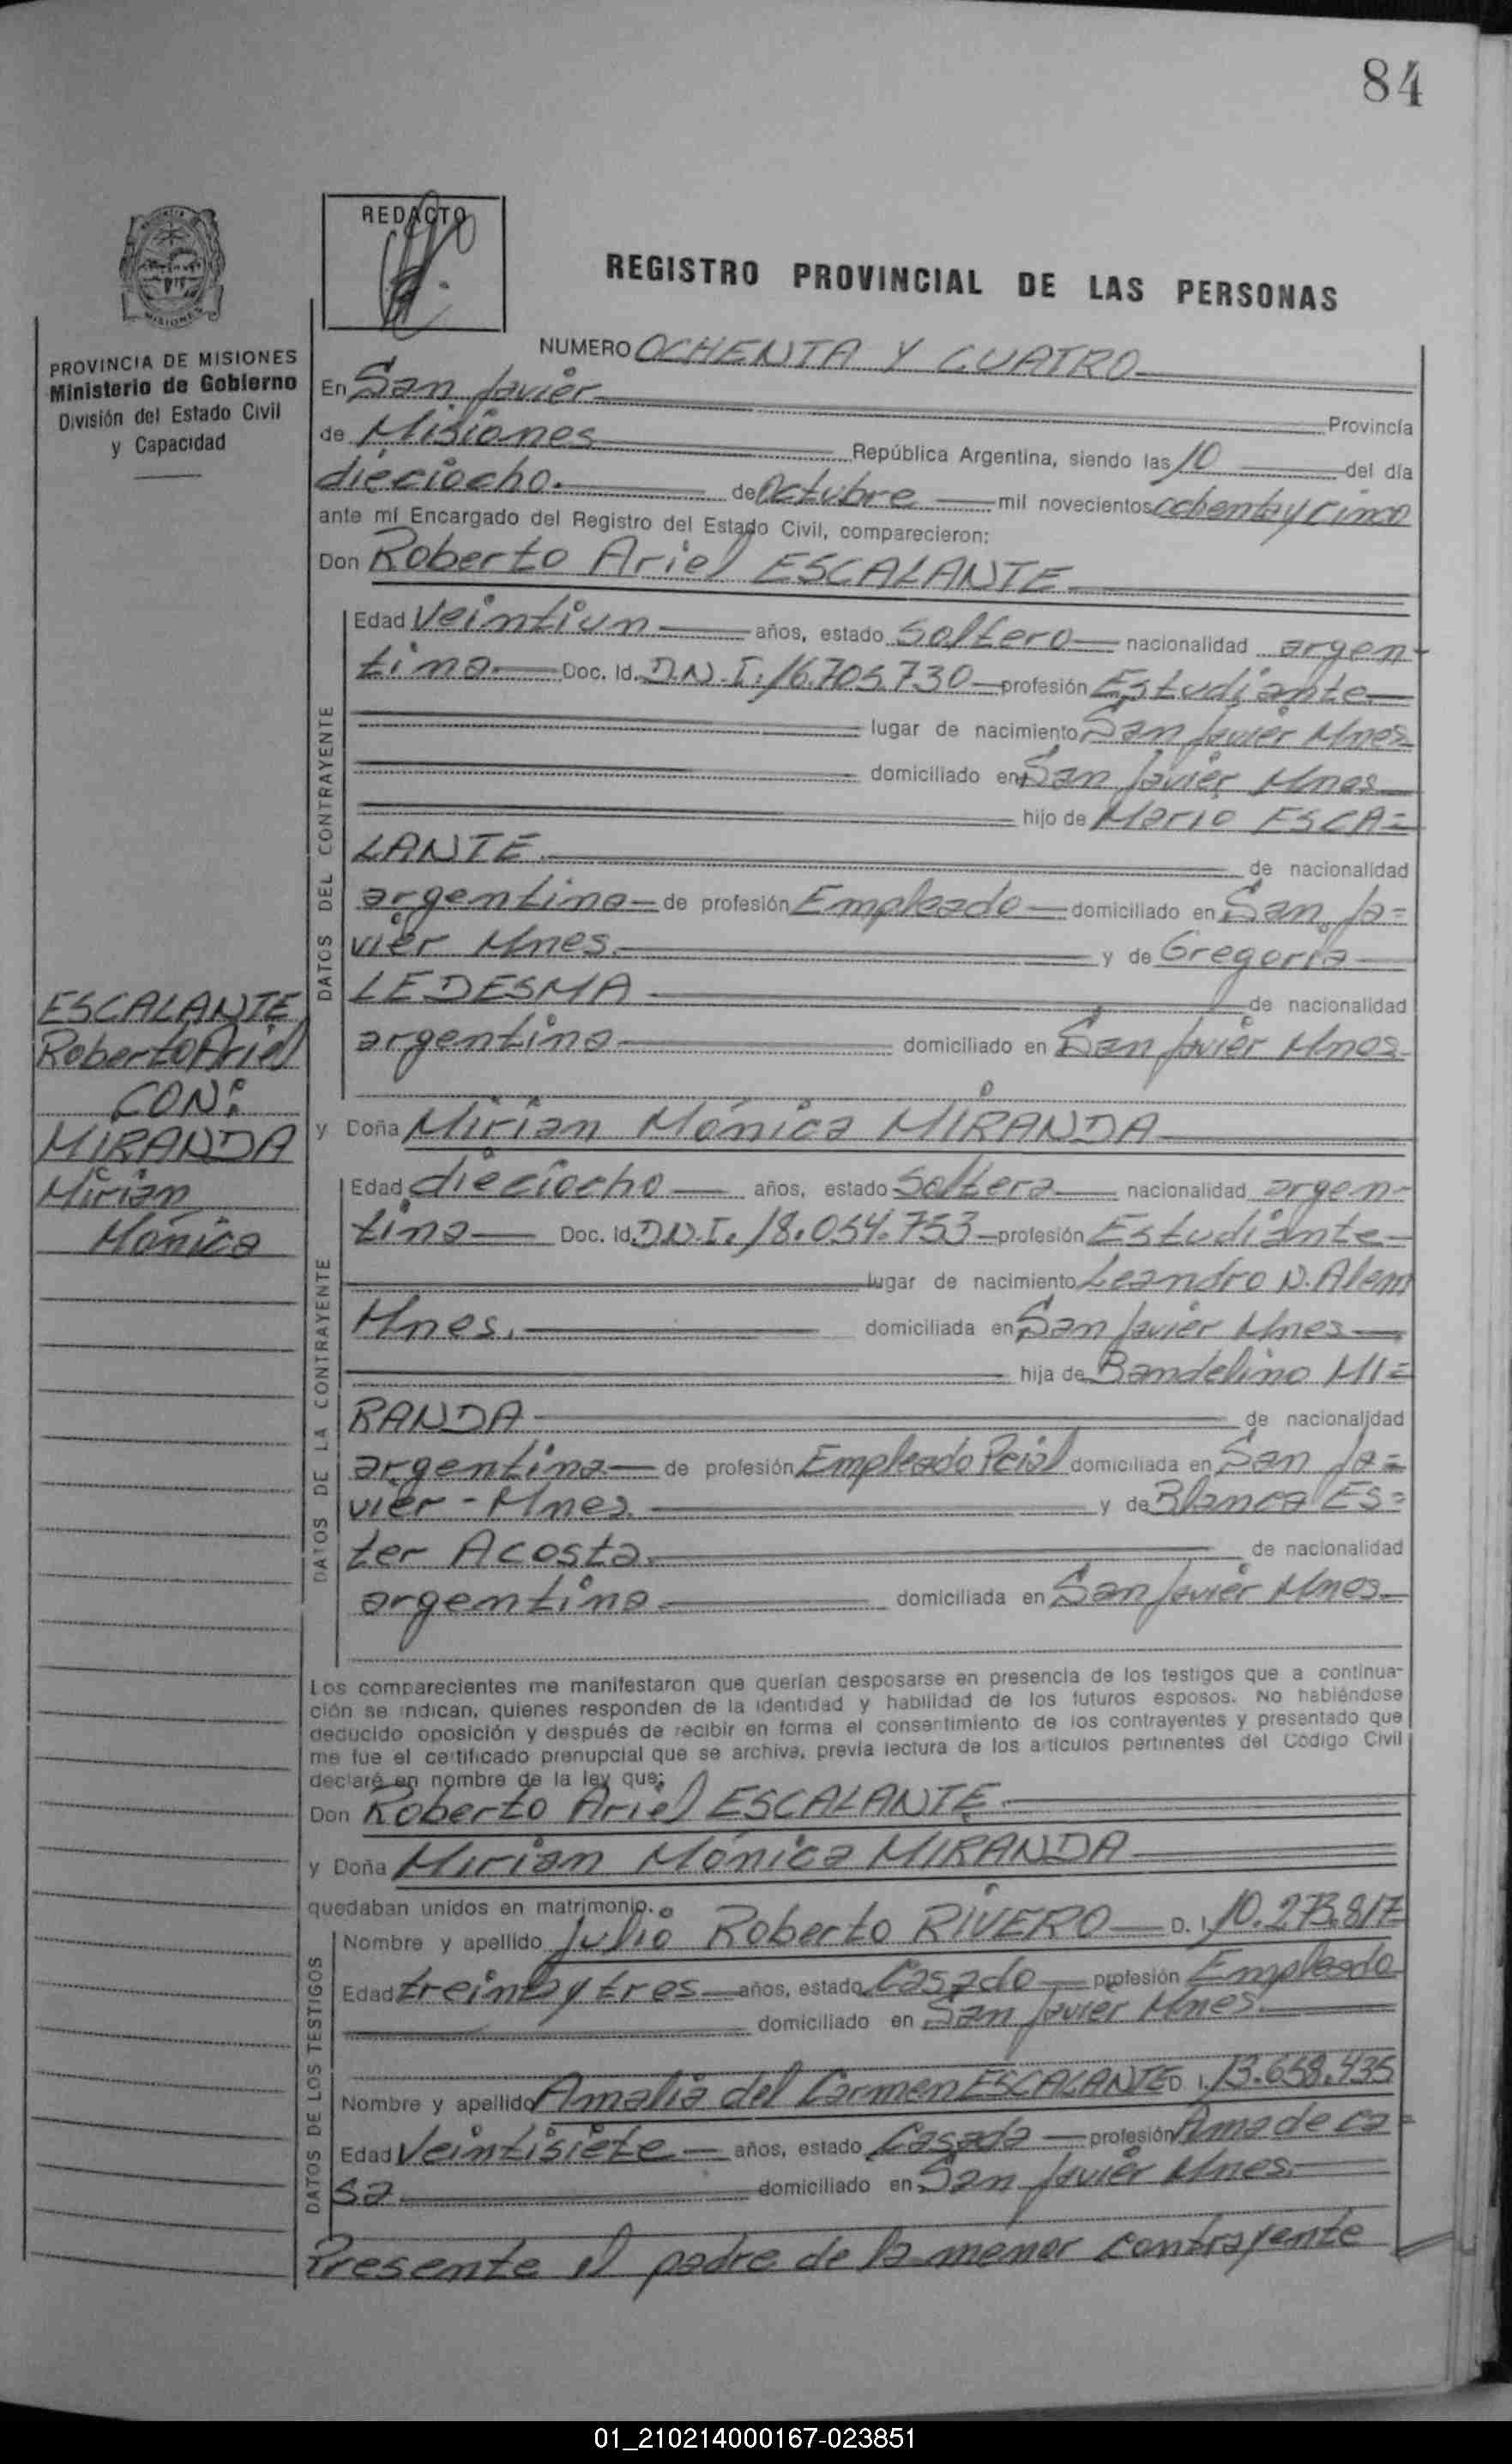 84
REDACTO
REGISTRO PROVINCIAL DE LAS PERSONAS
PROVINCIA DE MISIONES
Ministerio de Gobierno
División del Estado Civil
y Capacidad
NUMERO OCHENTA Y CUATRO
En San Javier Provincia
de Misiones República Argentina, siendo las 10 del día
dieciocho. de Octubre mil novecientos ochenta y cinco
ante mí Encargado del Registro del Estado Civil, comparecieron:
Don Roberto Ariel ESCALANTE
DATOS DEL CONTRAYENTE
Edad Veintiun años, estado Soltero nacionalidad argen-
tina Doc. Id. D.N.I. 16.705.730 profesión Estudiante
lugar de nacimiento San Javier Mnes
domiciliado en San Javier Mnes
hijo de Mario ESCA=
LANTE de nacionalidad
argentina de profesión Empleado domiciliado en San Ja=
vier Mnes. y de Gregoria
LEDESMA de nacionalidad
argentina domiciliado en San Javier Mnes
ESCALANTE
Roberto Ariel
CON:
MIRANDA
Mirian
Mónica
y Doña Mirian Mónica MIRANDA
DATOS DE LA CONTRAYENTE
Edad dieciocho años, estado Soltera nacionalidad argen-
tina Doc. Id. D.N.I. 18.054.753 profesión Estudiante
lugar de nacimiento Leandro N. Alem
Mnes. domiciliada en San Javier Mnes
hija de Bandelino MI=
RANDA de nacionalidad
argentina de profesión Empleado Pcial domiciliada en San Ja=
vier - Mnes. y de Blanca ES=
ter Acosta. de nacionalidad
argentina domiciliada en San Javier Mnes.
Los comparecientes me manifestaron que querían desposarse en presencia de los testigos que a continua-
ción se indican, quienes responden de la identidad y habilidad de los futuros esposos. No habiéndose
deducido oposición y después de recibir en forma el consentimiento de los contrayentes y presentado que
me fue el certificado prenupcial que se archiva, previa lectura de los artículos pertinentes del Código Civil
declaré en nombre de la ley que:
Don Roberto Ariel ESCALANTE
y Doña Mirian Mónica MIRANDA
quedaban unidos en matrimonio.
DATOS DE LOS TESTIGOS
Nombre y apellido Julio Roberto RIVERO D. I. 10.273.817
Edad treinta y tres años, estado Casado profesión Empleado
domiciliado en San Javier Mnes.
Nombre y apellido Amalia del Carmen ESCALANTE D I. 13.658.435
Edad Veintisiete años, estado Casada profesión Ama de ca=
sa domiciliado en San Javier Mnes.
Presente el padre de la menor contrayente
01_210214000167-023851